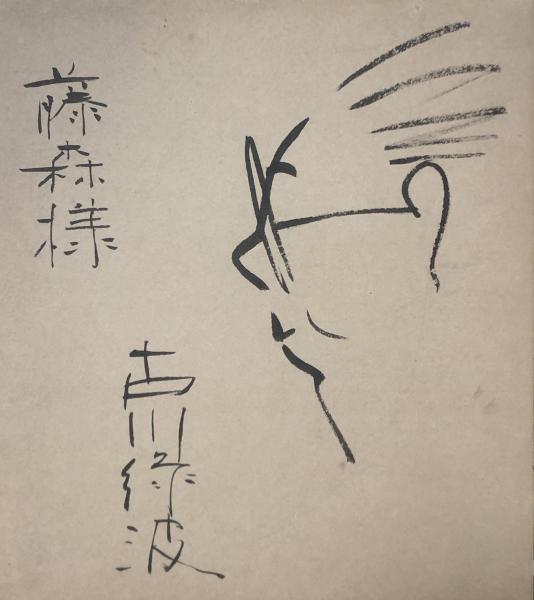 藤森様
古川緑波